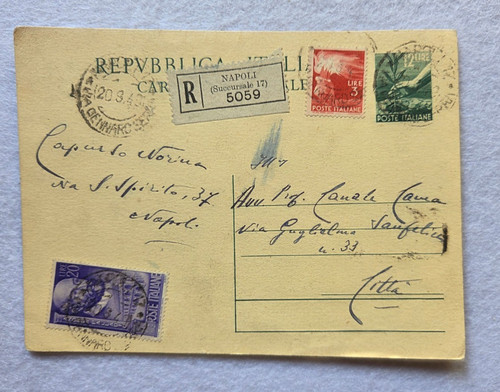 REPVBBLICA ITALIA
CAR
LE
R
NAPOLI
(Succursale 17)
5059
LIRE
3
POSTE ITALIANE
LIRE
POSTE ITALIANE
20.9
VIA GENNARO
Capurso Norina
via S. Spirito, 37
Napoli
Avv Prof. Canale Cama
Via Guglielmo Sanfelice
n. 33
Città
LIRE 20
POSTE ITALIANE